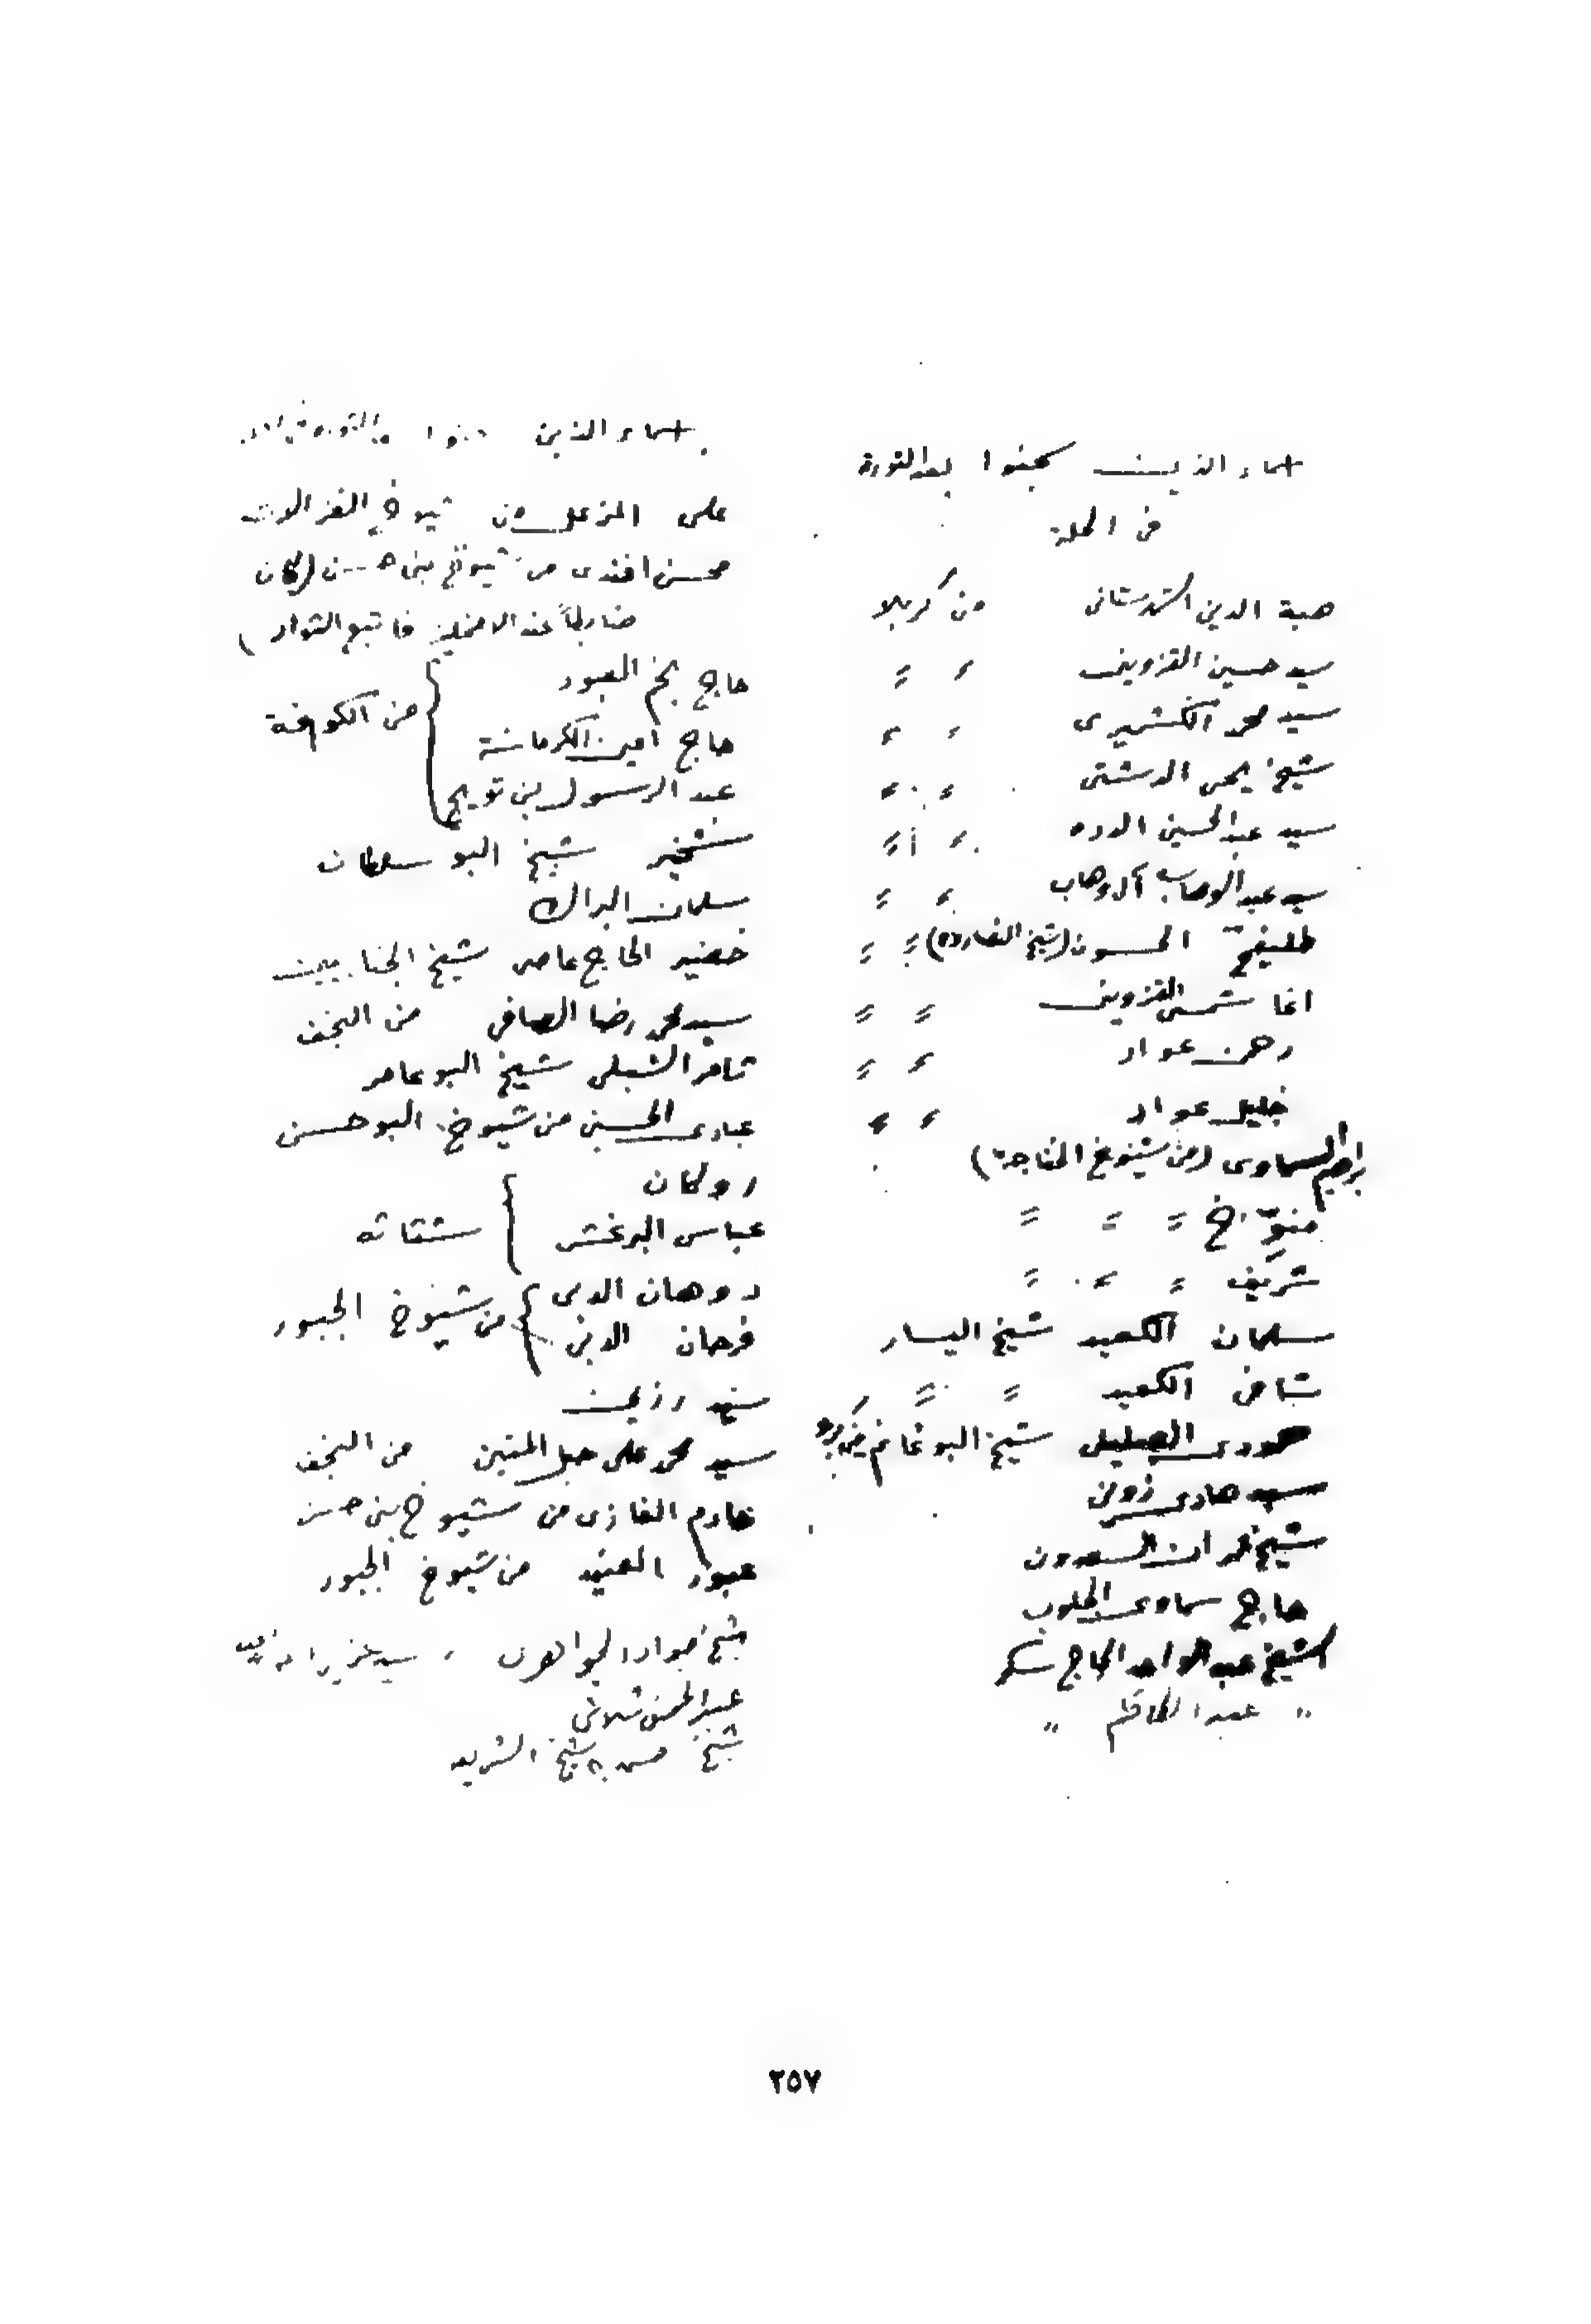 اسماء الذين سجنوا بعد الثورة
في الحلة
هبة الدين الشهرستاني من كربلا
سيد حسين القزويني 〃 〃
سيد محمد الكشميري 〃 〃
شيخ يحيى الرشتي 〃 〃
سيد عبدالحسين الدده 〃 〃
سيد عبدالوهاب آل وهاب 〃 〃
طليفح الحسون (شيخ النصاروه) 〃 〃
اغا شمس القزويني 〃 〃
رهن عواد 〃 〃
خليل عواد 〃 〃
ابراهيم السماوي (من شيوخ الخفاجة)
〃 〃 〃
شريف 〃 〃 〃
سلمان الكعيد شيخ اليسار
شاهي الكعيد 〃 〃
شيخ البو غانم
سيد هادي زوين
شيخ عمران السعدون
حاج سماوي الجلوب
الشيخ عبدالواحد الحاج سكر
〃 عبدالكاظم 〃
اسماء الذين
علي المزعل من شيوخ الغزالات
محسن افندي من شيوخ بني حسن (كان
ضابطاً عند الانجليز فاتبع الثوار)
حاج نجم العبود
حاج امين الكرماشة
من الكوفة
عبد الرسول بن تويج
شخير شيخ البو سلطان
سلمان البراك
خضير الحاج عاصي شيخ الجنابيين
سيد محمد رضا الصافي من النجف
ثامر الشبلي شيخ البو عامر
عبادي الحسين من شيوخ البو حسن
روكان
عباس البرغش
شفاثه
فرحان الدبي
من شيوخ الجبور
سيد محمد علي حبل المتين من النجف
خادم الغازي من شيوخ بني حسن
عبود العنيد من شيوخ الجبور
شيخ جواد الجواهري
عبدالحسين شلاش
شيخ
شيخ الشريعه
٢٥٧